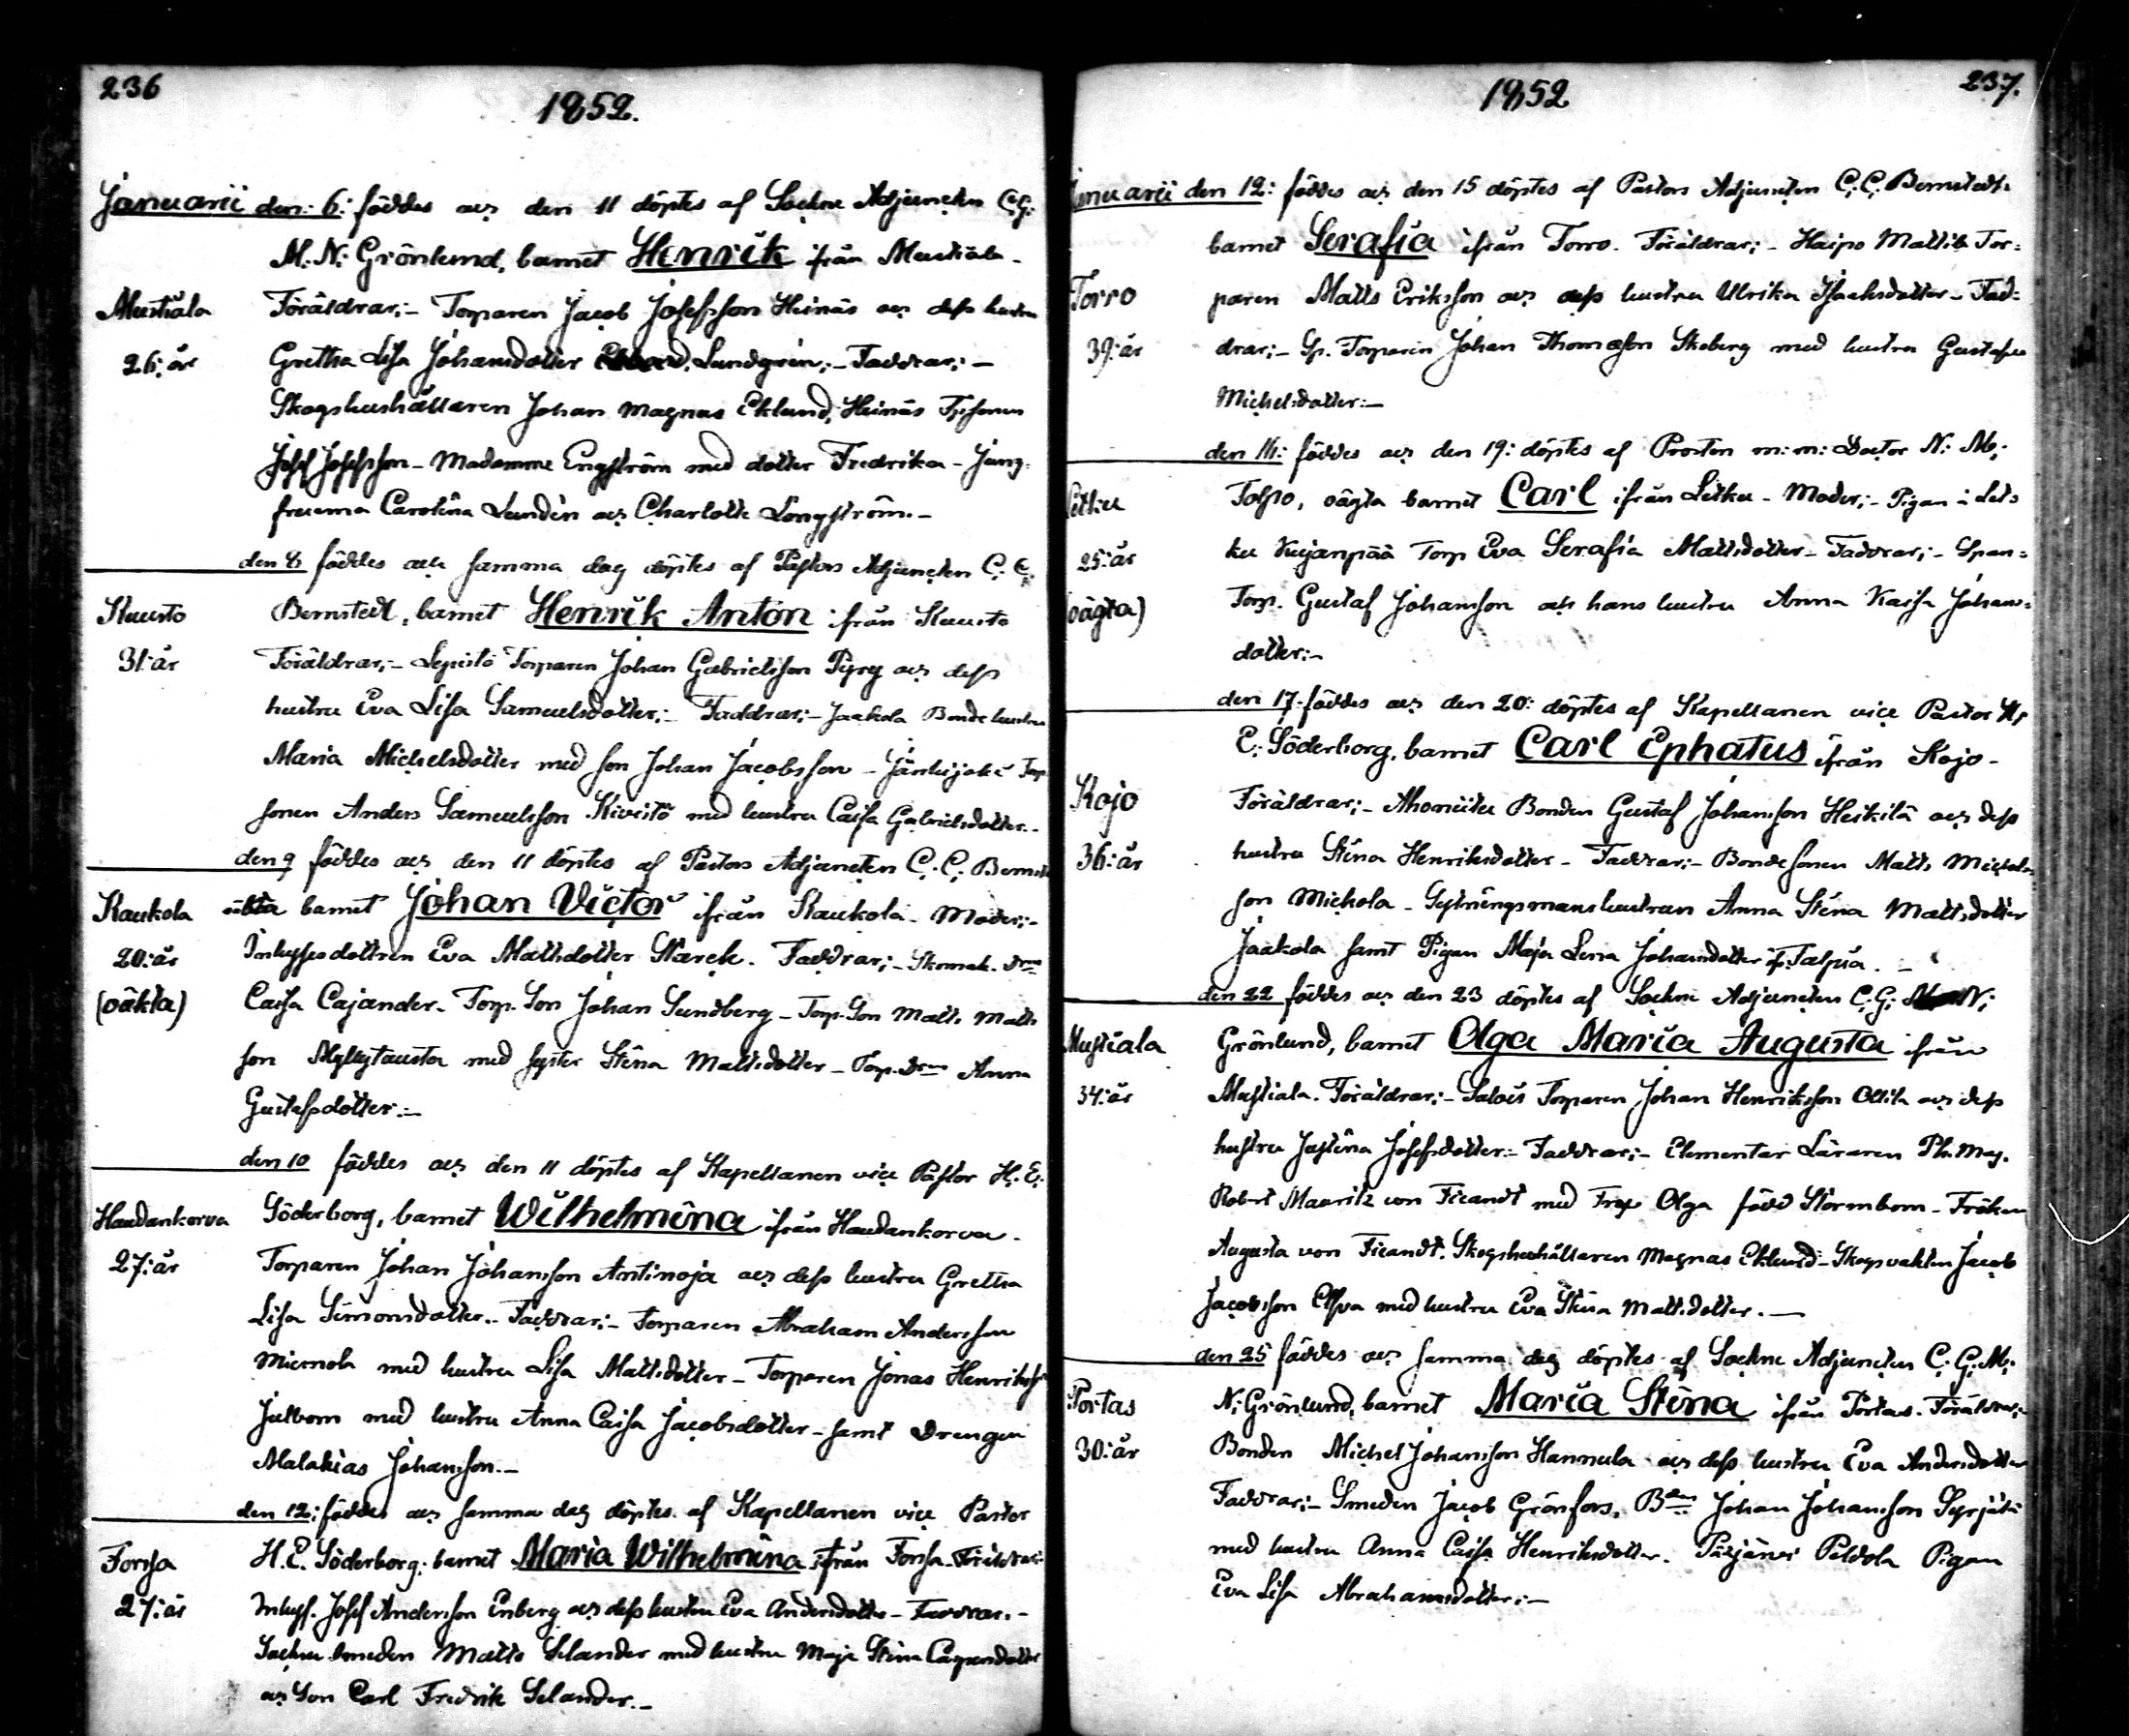 236
1852.
Januarii den: 6: föddes och den 11 döptes af Sockne Adjuncten C.G.
M. N. Grönlund, barnet Henrik ifrån Mustiala -
Mustiala Föräldrar;- Torparen Jacob Josefsson Heinäs och dess hustru
26: år Gretha Lisa Johansdotter Lundgrén;- Faddrar;-
Skogshushållaren Johan Magnus Eklund, Heinäs
Josef Josefsson - Madamme Engström med dotter Fredrika - Jung-
fruarna Carolina Lundén och Charlotta Longström.-
den 8 föddes och samma dag döptes af Pastors Adjuncten C. C.
Kuusto Bernstedt, barnet Henrik Anton ifrån Kuusto
31: år Föräldrar;- Lepistö Torparen Johan Gabrielsson Pyry och dess
hustru Eva Lisa Samuelsdotter;- Faddrar;- Jaakola Bonde hustru
Maria Michelsdotter med son Johan Jacobsson - Torp
sonen Anders Samuelsson Kivistö med hustru Caisa Gabrielsdotter.-
den 9 föddes och den 11 döptes af Pastors Adjuncten C. C. Bernst
Kaukola oäkta barnet Johan Victor ifrån Kaukola - Moder;-
20: år Inhysesdottren Eva Mattsdotter Starck. Faddrar;- Skomak. Drn
(oäkta) Caisa Cajander - Torp. Son Johan Sundberg - Torp. Son Matts Matts
son Myllytausta med syster Stina Mattsdotter - Torp. Drn Anna
Gustafsdotter:-
den 10 föddes och den 11 döptes af Kapellanen vice Pastor H. E.
Haudankorva Söderborg, barnet Wilhelmina ifrån Haudankorva -
27: år Torparen Johan Johansson Antinoja och dess hustru Gretha
Lisa Simonsdotter.- Faddrar;- Torparen Abraham Andersson
Miemola med hustru Lisa Mattsdotter - Torparen Jonas Henriksson
Julbom med hustru Anna Caisa Jacobsdotter - samt Drengen
Malakias Johansson.-
den 12: föddes och samma dag döptes af Kapellanen vice Pastor
Forssa H. E. Söderborg, barnet Maria Wilhelmina ifrån Forssa. Föräldrar;-
27: år Inhys. Josef Andersson Enberg och dess hustru Eva Andersdotter - Faddrar.-
Sockne smeden Matts Selander med hustru Maja Stina Caspersdotter
och Son Carl Fredrik Selander.-
237.
1852
Januarii den 12: föddes och den 15 döptes af Pastors Adjuncten C. C. Bernstedt
barnet Serafia ifrån Torro. Föräldrar;- Haipo Mattila Tor-
Torro paren Matts Eriksson och dess hustru Ulrika Isaksdotter - Fad-
39: år drar;- Sp. Torparen Johan Thomasson Skoberg med hustru Gustafva
Michelsdotter:-
den 16: föddes och den 19: döptes af Prosten m: m: Doctor N: M:
Letku Tolpo, oägta barnet Carl ifrån Letku - Moder;- Pigan i Let-
25: år ku Kujanpää Torp Eva Serafia Mattsdotter - Faddrar;- Span-
(oägta) Torp. Gustaf Johansson och hans hustru Anna Kaisa Johans-
dotter:-
den 17: föddes och den 20: döptes af Kapellanen vice Pastor H.
E. Söderborg, barnet Carl Ephatus ifrån Kojo -
Kojo Föräldrar;- Ahoniitu Bonden Gustaf Johansson Heikilä och dess
36: år hustru Stina Henriksdotter - Faddrar;- Bonde sonen Matts Michels
son Michola - Gästningsmans hustrun Anna Stina Mattsdotter
Jaakola samt Pigan Maja Lena Johansdotter ifr. Talpia. -
den 22 föddes och den 23 döptes af Sockne Adjuncten C. G. M. N.
Mustiala Grönlund, barnet Olga Maria Augusta ifrån
34: år Mustiala. Föräldrar;- Salois Torparen Johan Henriksson Ollila och dess
hustru Justina Josefsdotter.- Faddrar;- Elementar Läraren Ph. Mag.
Robert Mauritz von Fieandt med Fru Olga född Stormbom - Fröken
Augusta von Fieandt. Skogshushållaren Magnus Eklund - Skogsvakten Jacob
Jacobsson med hustru Eva Stina Mattsdotter.-
den 25 föddes och samma dag döptes af Sockne Adjuncten C. G. M.
Portas N. Grönlund, barnet Maria Stina ifrån Portas. Föräldrar;-
30: år Bonden Michel Johansson Hannula och dess hustru Eva Andersdotter
Faddrar;- Smeden Jacob Grönfors, Bden Johan Johansson Syrjälä
med hustru Anna Caisa Henriksdotter. Peldola Pigan
Eva Lisa Abrahamsdotter:-